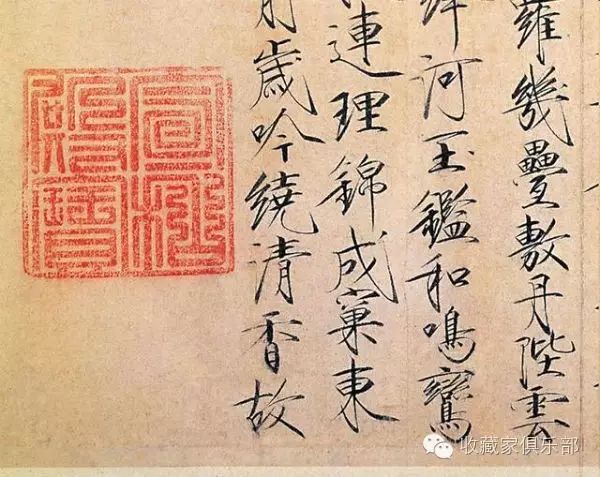 羅幾疊敷丹陛雲
絳河玉鑑和鳴鸞
連理錦成窠東
前歲吟繞清香故
宣和殿寶
收藏家俱乐部